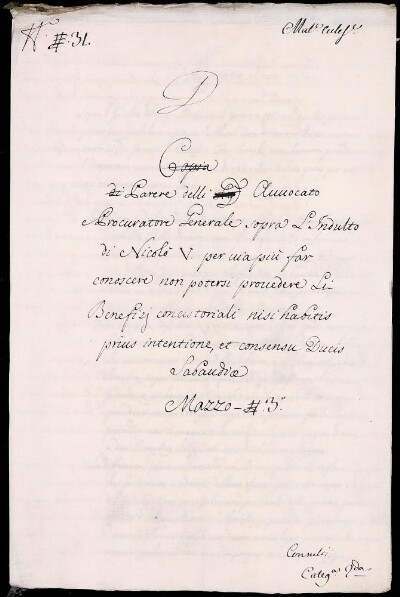 N.º #:31.
Mat.e Eccles.e
D
Copia
di Parere delli Avvocato
e Procuratore Generale sopra L'Indulto
di Nicolò V. per via più far
conoscere non potersi provedere Li
Benefizj concistoriali nisi habitis
prius intentione, et consensu Ducis
Sabaudiæ
Mazzo - #:3º
Consulti
Categ.a